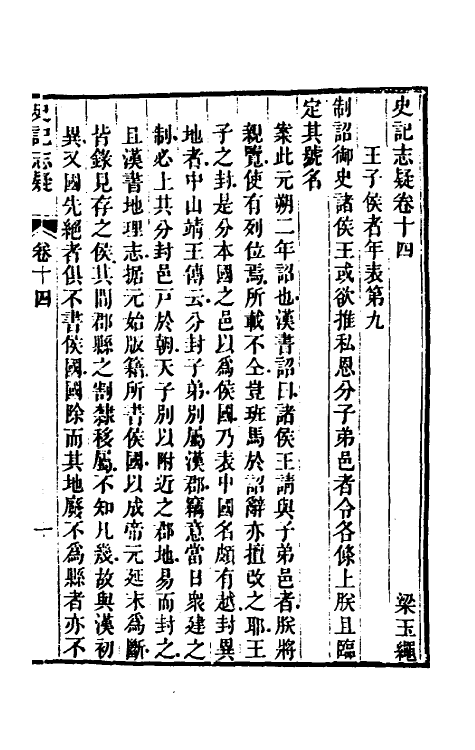 史記志疑卷十四
梁玉繩
王子侯者年表第九
制詔御史諸侯王或欲推私恩分子弟邑者令各條上朕且臨
定其號名
案此元朔二年詔也漢書詔曰諸侯王請與子弟邑者朕將
親覽使有列位焉所載不仝豈班馬於詔辭亦擅改之耶王
子之封是分本國之邑以爲侯國乃表中國名頗有越封異
地者中山靖王傳云分封子弟別屬漢郡竊意當日衆建之
制必上其分封邑戸於朝天子別以附近之郡地易而封之
且漢書地理志據元始版籍所書侯國以成帝元延末爲斷
皆錄見存之侯其間郡縣之割隸移屬不知凡幾故與漢初
異又國先絶者俱不書侯國國除而其地廢不爲縣者亦不
史記志疑
卷十四
一